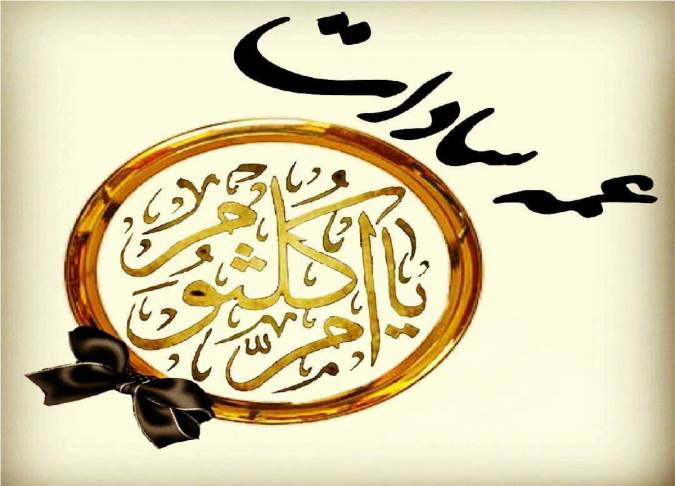 عمه سادات
یا ام کلثوم